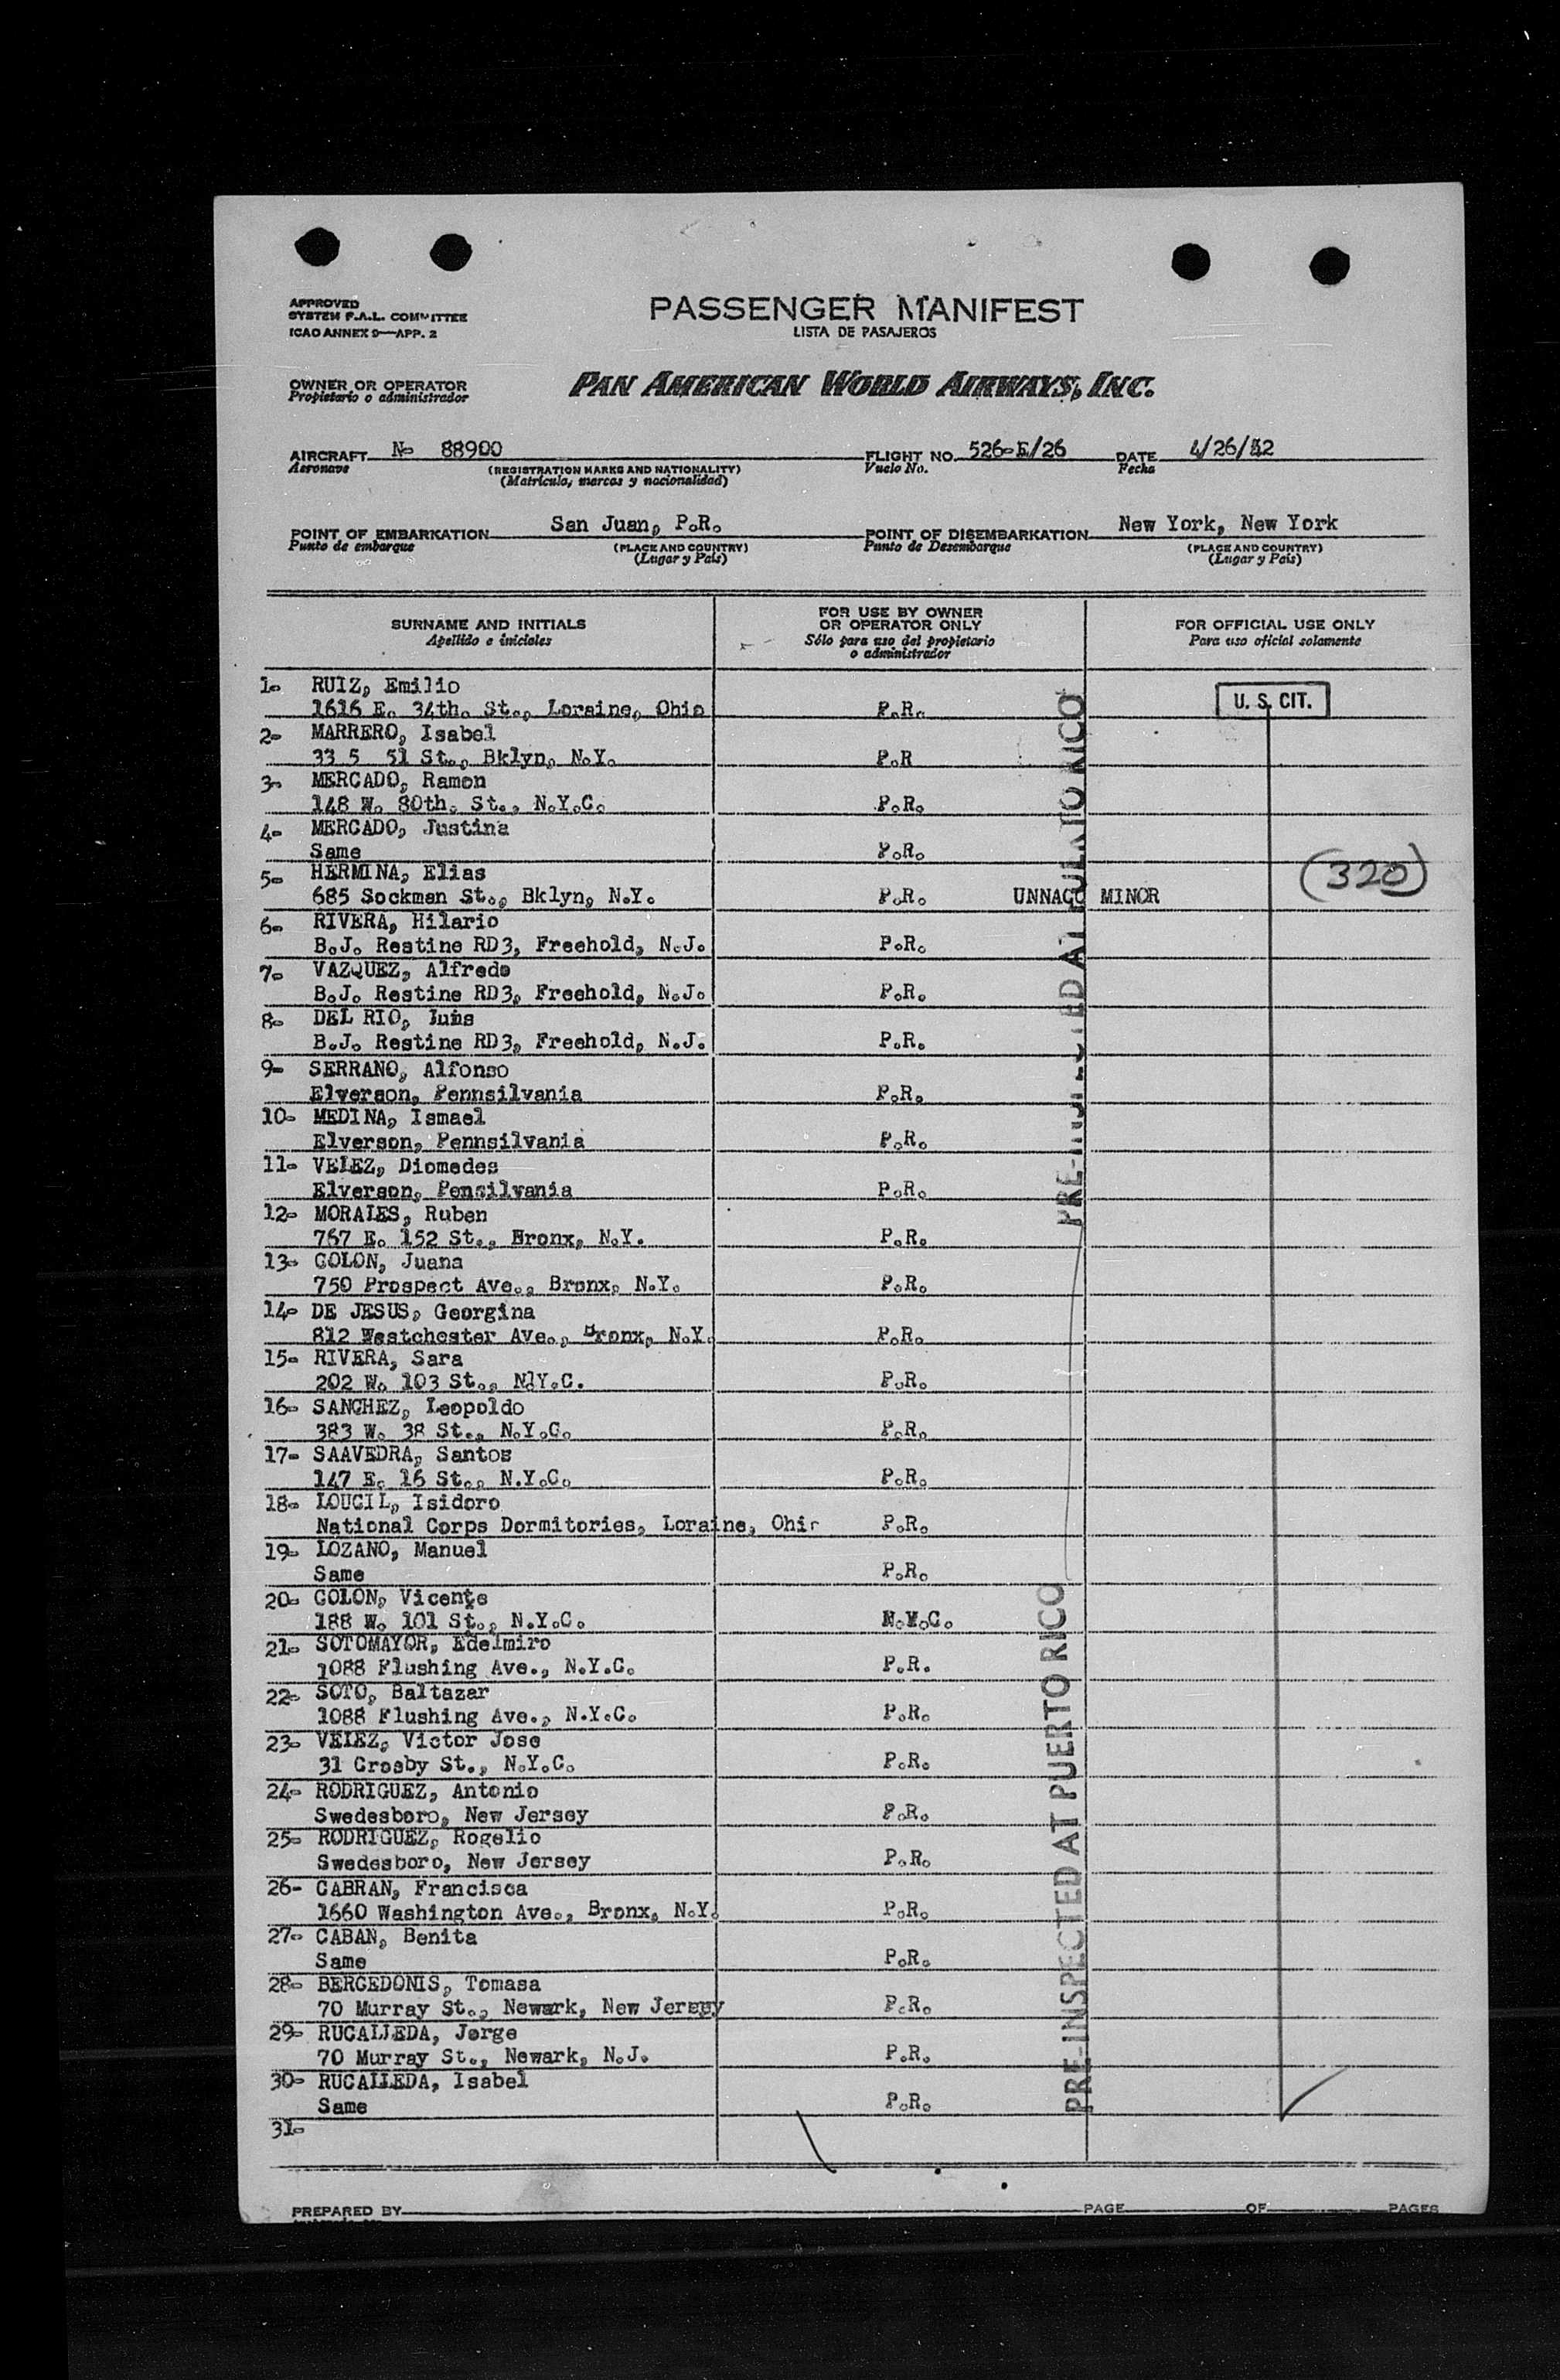 APPROVED
SYSTEM F.A.L. COMMITTEE
ICAO ANNEX 9—APP. 2
PASSENGER MANIFEST
LISTA DE PASAJEROS
OWNER OR OPERATOR
Propietario o administrador
PAN AMERICAN WORLD AIRWAYS, INC.
AIRCRAFT N- 88900 FLIGHT NO. 526-E/26 DATE 4/26/52
Aeronave (REGISTRATION MARKS AND NATIONALITY) Vuelo No. Fecha
(Matricula, marcas y nacionalidad)
POINT OF EMBARKATION San Juan, P.R. POINT OF DISEMBARKATION New York, New York
Punto de embarque (PLACE AND COUNTRY) Punto de Desembarque (PLACE AND COUNTRY)
(Lugar y País) (Lugar y País)
SURNAME AND INITIALS FOR USE BY OWNER OR OPERATOR ONLY FOR OFFICIAL USE ONLY
Apellido e iniciales Sólo para uso del propietario o administrador Para uso oficial solamente
1- RUIZ, Emilio
1616 E. 34th. St., Loraine, Ohio P.R. U. S. CIT.
2- MARRERO, Isabel
33 5 51 St., Bklyn, N.Y. P.R
3- MERCADO, Ramon
148 W. 80th. St., N.Y.C. P.R.
4- MERCADO, Justina
Same P.R.
5- HERMINA, Elias (320)
685 Sockman St., Bklyn, N.Y. P.R. UNNACO MINOR
6- RIVERA, Hilario
B.J. Restine RD3, Freehold, N.J. P.R.
7- VAZQUEZ, Alfredo
B.J. Restine RD3, Freehold, N.J. P.R.
8- DEL RIO, Juis
B.J. Restine RD3, Freehold, N.J. P.R.
9- SERRANO, Alfonso
Elverson, Pennsilvania P.R.
10- MEDINA, Ismael
Elverson, Pennsilvania P.R.
11- VELEZ, Diomedes
Elverson, Pensilvania P.R.
12- MORALES, Ruben
767 E. 152 St., Bronx, N.Y. P.R.
13- COLON, Juana
750 Prospect Ave., Bronx, N.Y. P.R.
14- DE JESUS, Georgina
812 Westchester Ave., Bronx, N.Y. P.R.
15- RIVERA, Sara
202 W. 103 St., N.Y.C. P.R.
16- SANCHEZ, Leopoldo
383 W. 38 St., N.Y.C. P.R.
17- SAAVEDRA, Santos
147 E. 16 St., N.Y.C. P.R.
18- LOUCIL, Isidoro
National Corps Dormitories, Loraine, Ohio P.R.
19- LOZANO, Manuel
Same P.R.
20- COLON, Vicente
188 W. 101 St., N.Y.C. N.Y.C.
21- SOTOMAYOR, Edelmiro
1088 Flushing Ave., N.Y.C. P.R.
22- SOTO, Baltazar
1088 Flushing Ave., N.Y.C. P.R.
23- VELEZ, Victor Jose
31 Crosby St., N.Y.C. P.R.
24- RODRIGUEZ, Antonio
Swedesboro, New Jersey P.R.
25- RODRIGUEZ, Rogelio
Swedesboro, New Jersey P.R.
26- CABRAN, Francisca
1660 Washington Ave., Bronx, N.Y. P.R.
27- CABAN, Benita
Same P.R.
28- BERCEDONIS, Tomasa
70 Murray St., Newark, New Jersey P.R.
29- RUCALLEDA, Jorge
70 Murray St., Newark, N.J. P.R.
30- RUCALLEDA, Isabel
Same P.R.
31-
PRE-INSPECTED AT PUERTO RICO
PRE-INSPECTED AT PUERTO RICO
PREPARED BY PAGE OF PAGES